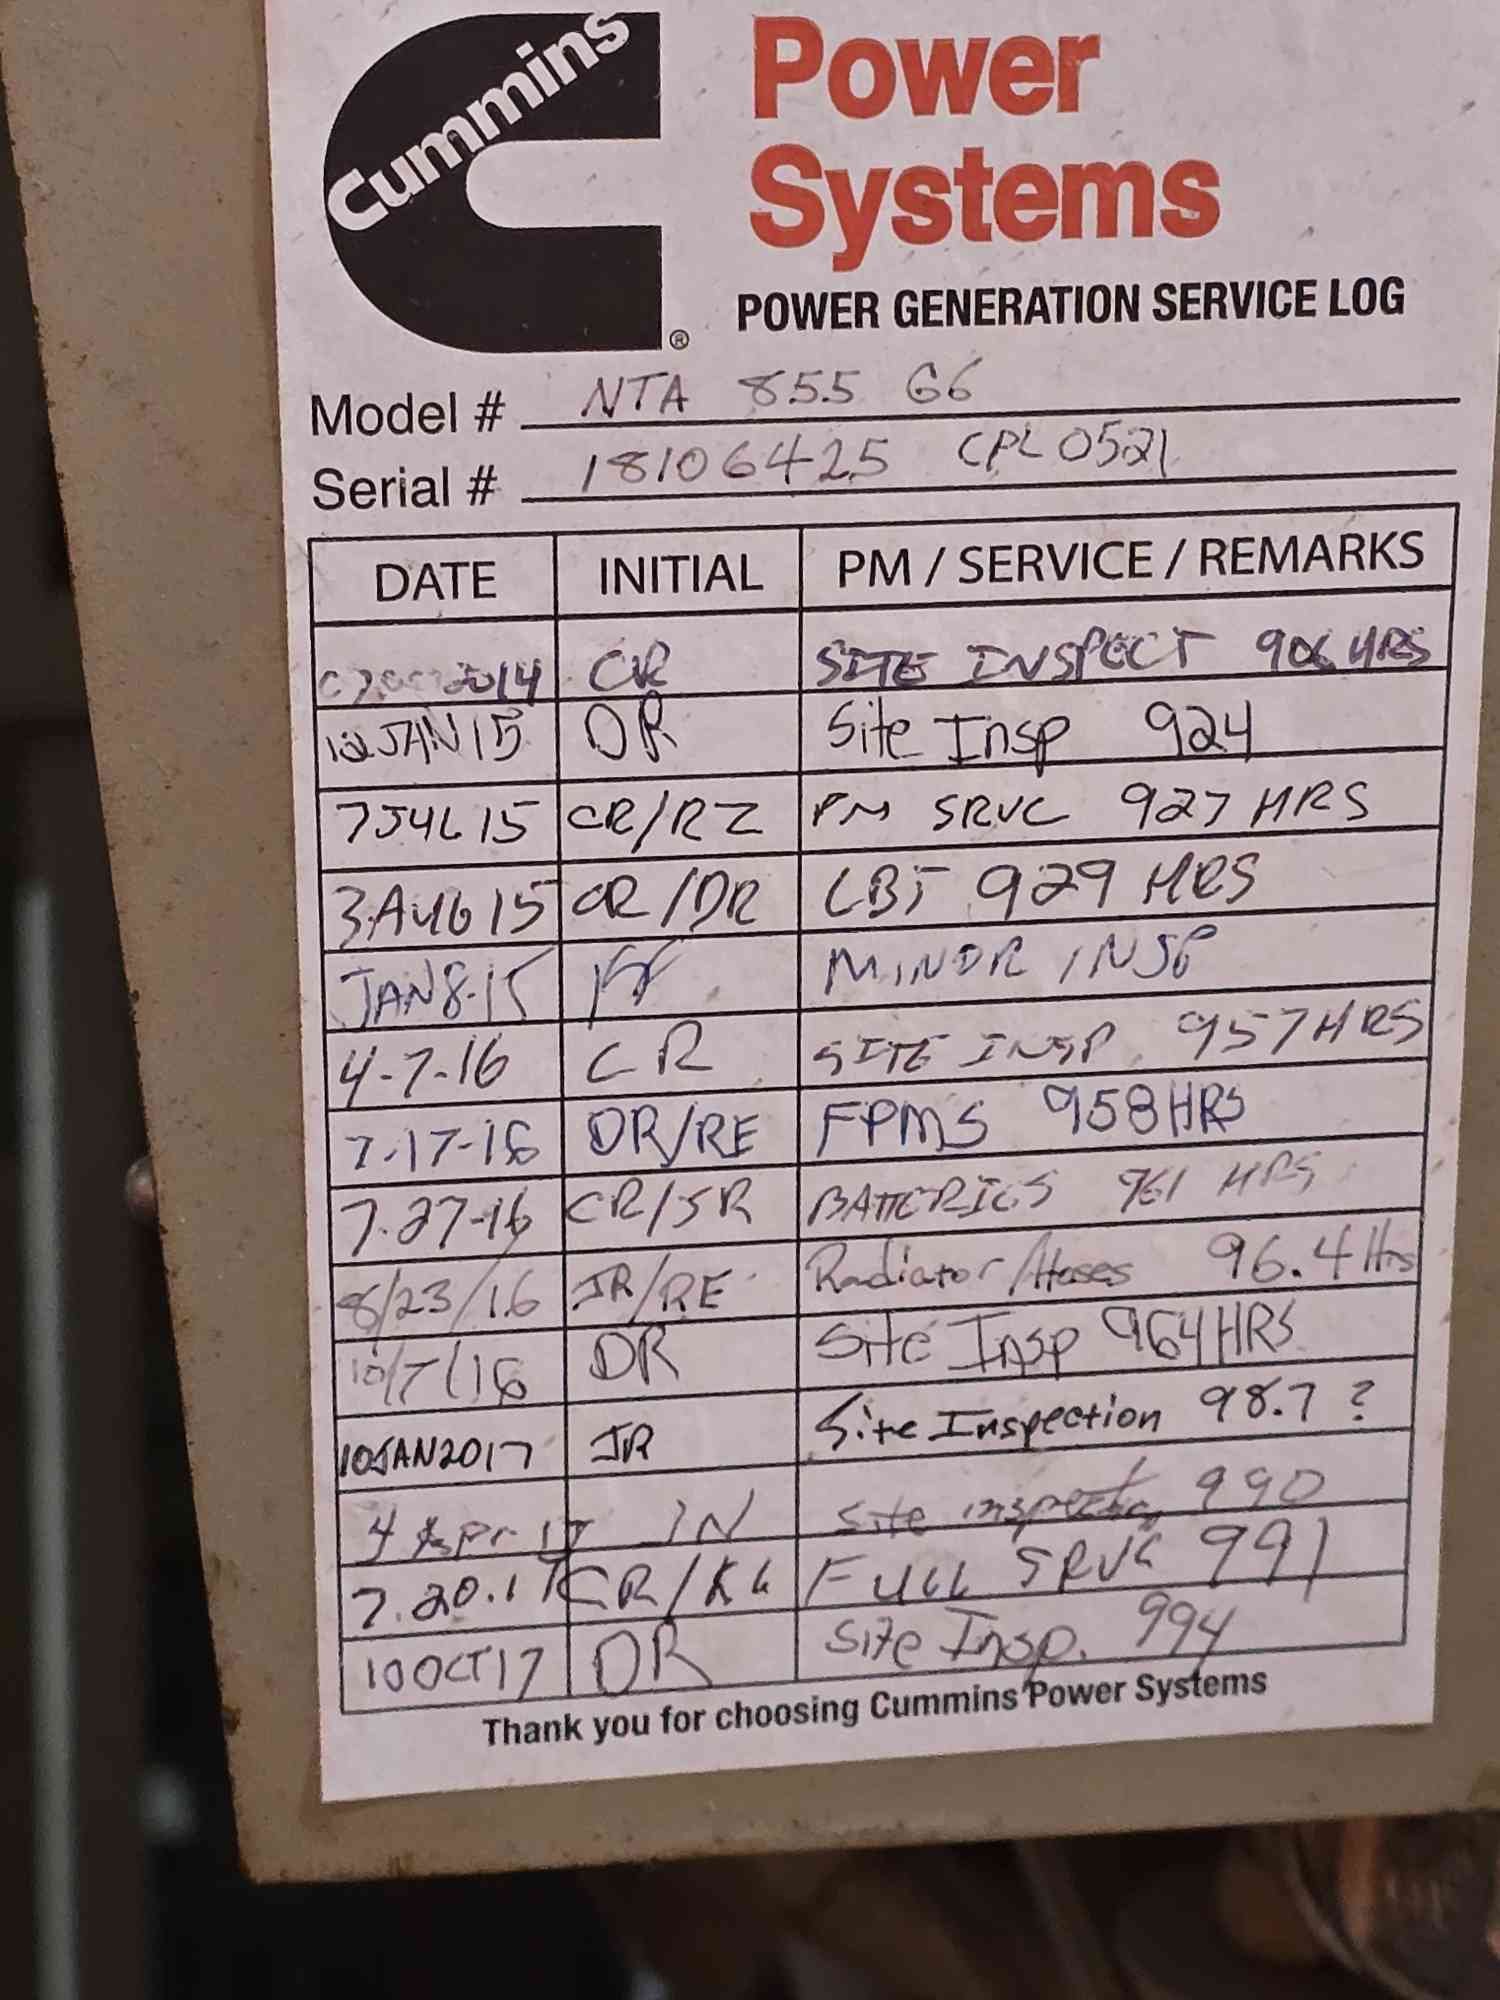 Cummins
Power
Systems
®
POWER GENERATION SERVICE LOG
Model # NTA 855 G6
Serial # 18106425 CPL 0521
DATE INITIAL PM / SERVICE / REMARKS
2014 CR SITE INSPECT 906 HRS
12JAN15 DR Site Insp 924
7JUL15 CR/RZ PM SRVC 927 HRS
3AUG15 CR/DR LBT 929 HRS
JAN8-15 MINOR INSP
4-7-16 CR SITE INSP. 957 HRS
7-17-16 DR/RE FPMS 958HRS
7.27-16 CR/JR BATTERIES 961 HRS
8/23/16 JR/RE Radiator/Hoses 96.4 Hrs
10/7/16 DR Site Insp 964HRS
10JAN2017 JR Site Inspection 98.7 ?
4 Apr 17 IN Site inspection 990
7.20.17 CR/KG FULL SRVC 991
10OCT17 DR Site Insp. 994
Thank you for choosing Cummins Power Systems